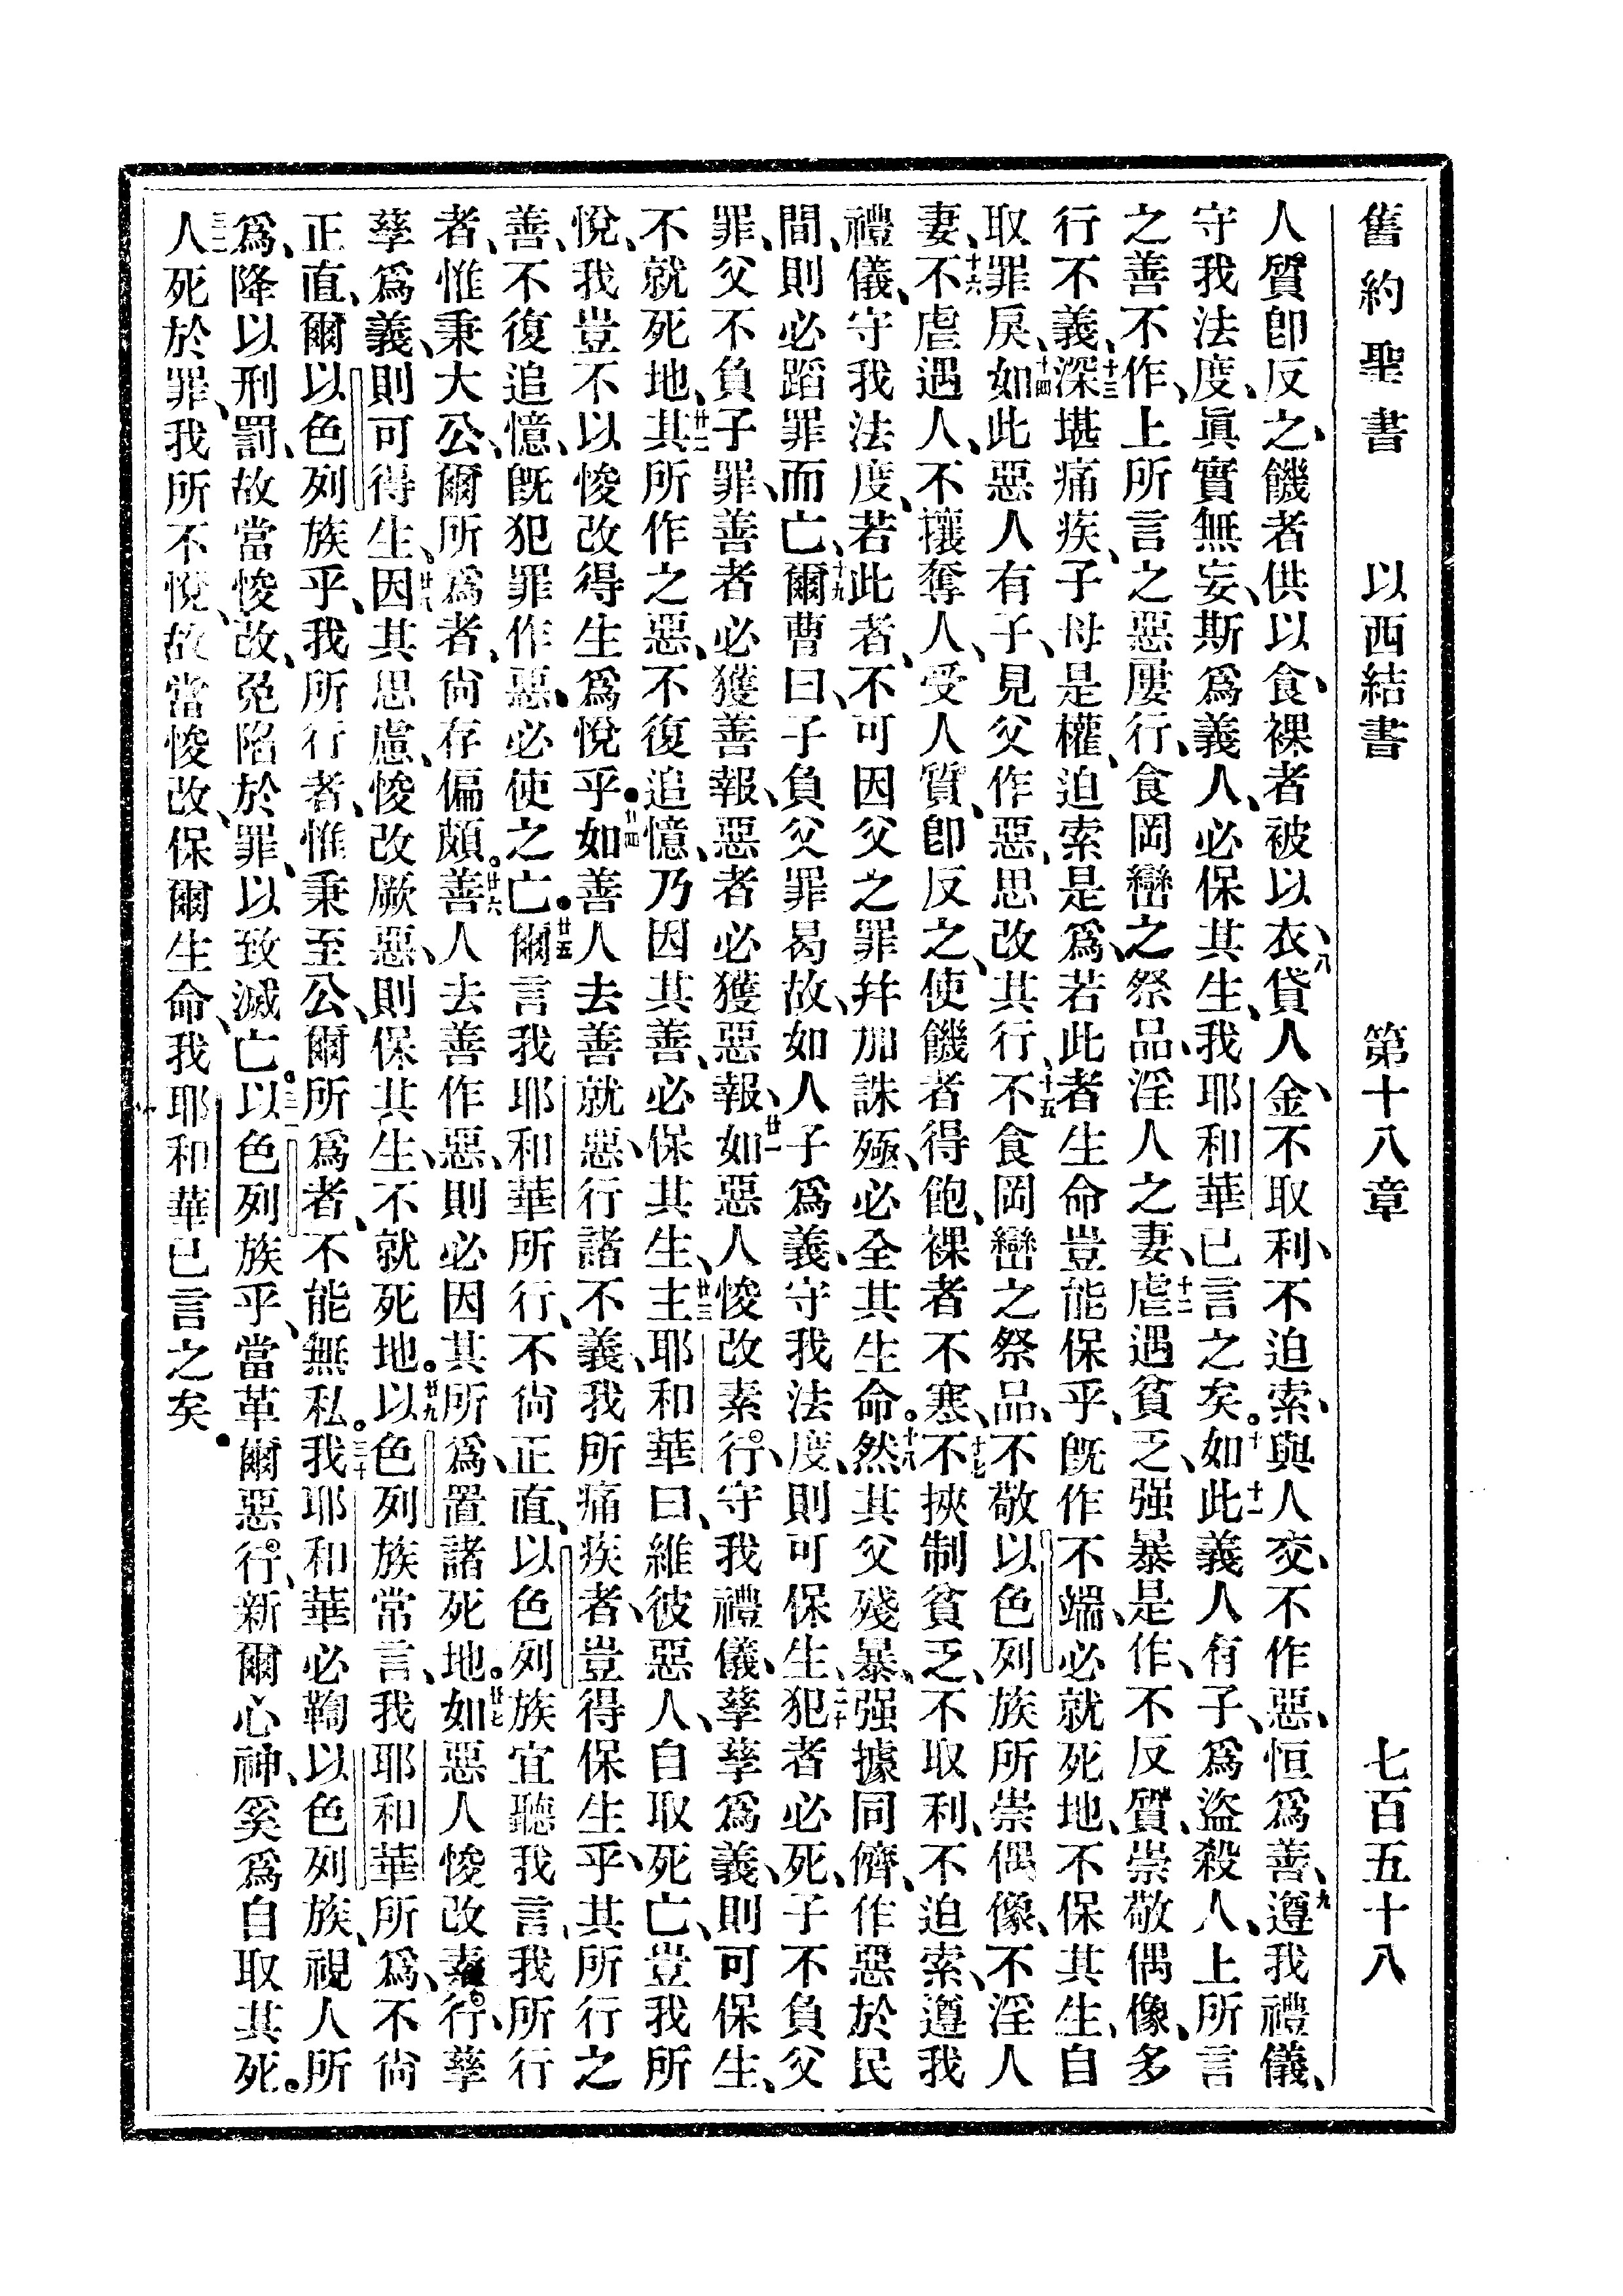 舊約聖書　以西結書　第十八章　七百五十八
人質卽反之、饑者供以食、裸者被以衣、八貸人金、不取利、不迫索、與人交、不作惡、恒爲善、九遵我禮儀、
守我法度、眞實無妄、斯爲義人、必保其生、我耶和華已言之矣。十如此十一義人有子、爲盜殺人、上所言
之善不作、上所言之惡屢行、食岡巒之祭品、淫人之妻、十二虐遇貧乏、强暴是作、不反質、崇敬偶像、多
行不義、十三深堪痛疾、子母是權、迫索是爲、若此者生命豈能保乎、旣作不端、必就死地、不保其生、自
取罪戾、十四如此惡人有子、見父作惡、思改其行、十五不食岡巒之祭品、不敬以色列族所崇偶像、不淫人
妻、十六不虐遇人、不攘奪人、受人質、卽反之、使饑者得飽、裸者不寒、十七不挾制貧乏、不取利、不迫索、遵我
禮儀、守我法度、若此者、不可因父之罪幷加誅殛、必全其生命。十八然其父殘暴、强據同儕、作惡於民
間、則必蹈罪而亡、十九爾曹曰、子負父罪曷故、如人子爲義、守我法度、則可保生、二十犯者必死、子不負父
罪、父不負子罪、善者必獲善報、惡者必獲惡報、廿一如惡人悛改素行、守我禮儀、孳孳爲義、則可保生、
不就死地、廿二其所作之惡、不復追憶、乃因其善、必保其生、廿三主耶和華曰、維彼惡人、自取死亡、豈我所
悅、我豈不以悛改得生爲悅乎。廿四如善人去善就惡、行諸不義、我所痛疾者、豈得保生乎、其所行之
善、不復追憶、旣犯罪作惡、必使之亡。廿五爾言我耶和華所行、不尙正直、以色列族宜聽我言、我所行
者、惟秉大公、爾所爲者、尙存偏頗。廿六善人去善作惡、則必因其所爲、置諸死地。廿七如惡人悛改素行、孳
孳爲義、則可得生、廿八因其思慮、悛改厥惡、則保其生、不就死地。廿九以色列族常言、我耶和華所爲、不尙
正直、爾以色列族乎、我所行者、惟秉至公、爾所爲者、不能無私。三十我耶和華必鞫以色列族、視人所
爲、降以刑罰、故當悛改、免陷於罪、以致滅亡。三一以色列族乎、當革爾惡行、新爾心神、奚爲自取其死。
三二人死於罪、我所不悅、故當悛改、保爾生命、我耶和華已言之矣。